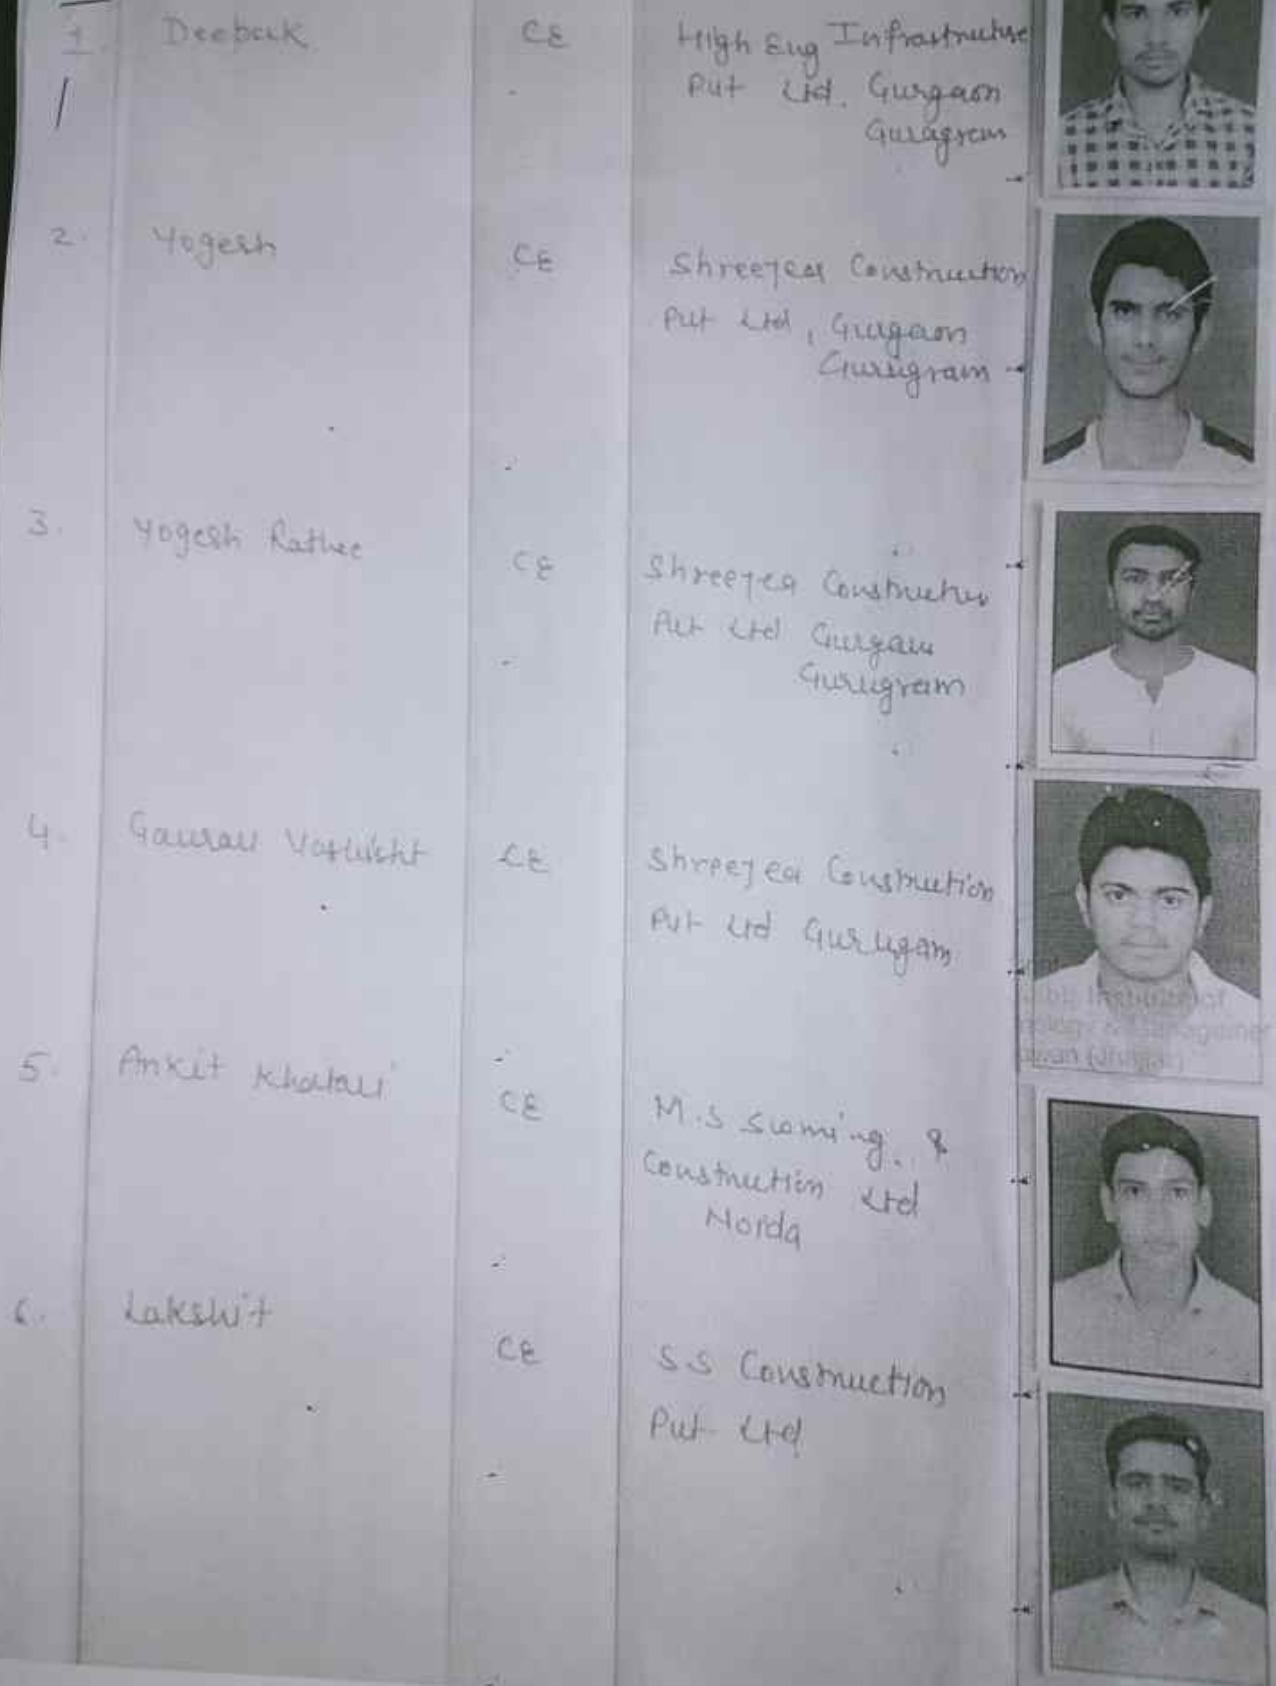 1. Deepak CE High Eng Infrastructure
Pvt Ltd. Gurgaon
Gurugram
2. Yogesh CE Shreejea Construction
Pvt Ltd, Gurgaon
Gurugram
3. Yogesh Rathee CE Shreejea Construction
Pvt Ltd Gurgaon
Gurugram
4. Gaurav Vashisht CE Shreejea Construction
Pvt Ltd Gurugam
5. Ankit CE M.S &
Construction Ltd
Noida
6. Lakshit CE S.S Construction
Pvt Ltd
Institute of